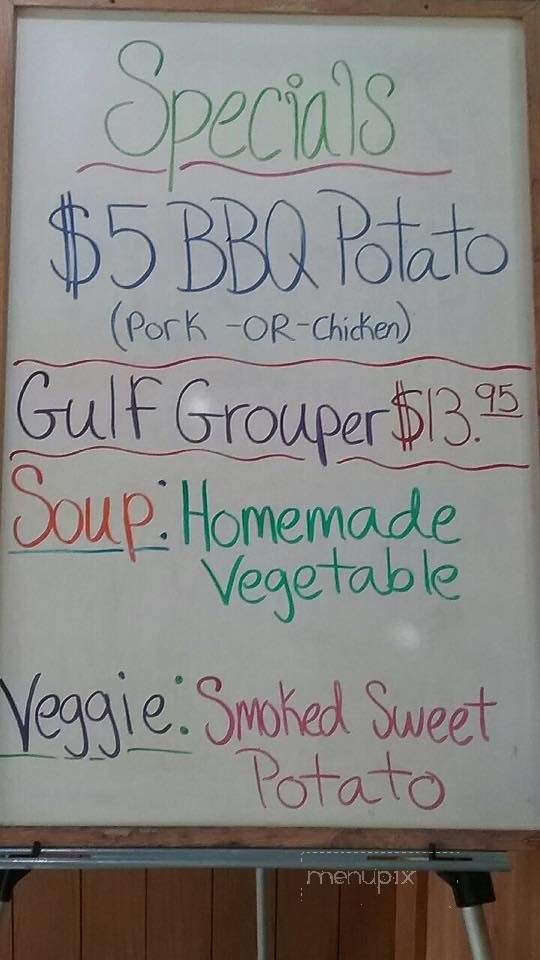 Specials
$5 BBQ Potato
(Pork -OR- Chicken)
Gulf Grouper $13.95
Soup: Homemade
Vegetable
Veggie: Smoked Sweet
Potato
menupix